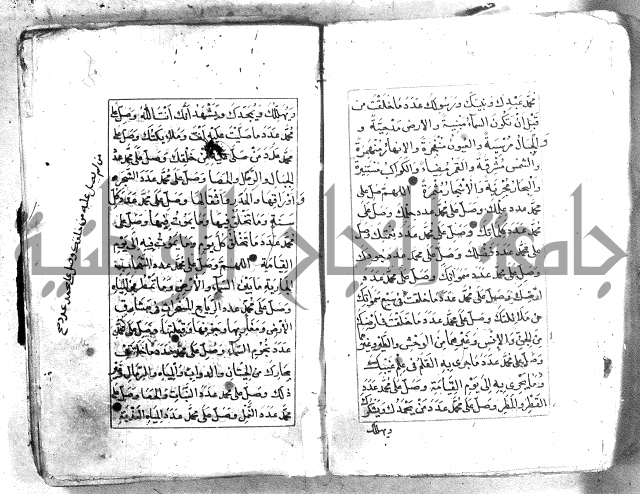 محمد عبدك ونبيك ورسولك عدد ما خلقت من
قبل ان تكون السماء مبنية والارض مدحية و
والجبال مرسية والعيون منفجرة والانهار منهمرة
والشمس مشرقة والقمر مضيا والكواكب مستنيرة
والبحار مجرية والاشجار مثمرة اللهم صل على
محمد عدد علمك وصل على محمد عدد حلمك وصل على
محمد عدد كلماتك وصل على محمد عدد نعمتك
محمد عدد فضلك وصل على محمد عدد جودك
وصل على محمد عدد سمواتك وصل على محمد عدد
ارضك وصل على محمد عدد ما خلقت في سبع سمواتك
من ملائكتك وصل على محمد عدد ما خلقت في ارضك
من الجن والانس وغيرهما من الوحش والطير وغيرهما
وصل على محمد عدد ما جرى به القلم في علم غيبك
وما يجري به الى يوم القيامة وصل على محمد عدد
القطر والمطر وصل على محمد عدد من يحمدك ويشكرك
ويهللك
ويهللك ويمجدك ويشهد انك انت الله وصل على
محمد عدد ما صليت عليه انت وملائكتك وصل على
محمد عدد من صلى عليه من خلقك وصل على محمد عدد
الجبال والرمل والحصا وصل على محمد عدد الشجر
واوراقها والمدر واثقالها وصل على محمد عدد كل
سنة وما تخلق فيها وما يموت فيها وصل على
محمد عدد ما تخلق كل يوم وما يموت فيه الى يوم
القيامة اللهم وصل على محمد عدد السحاب
الجارية ما بين السماء والارض وما تمطر من المياه
وصل على محمد عدد الرياح المسخرات في مشارق
الارض ومغاربها وجوفها وقبلتها وصل على محمد
عدد نجوم السماء وصل على محمد عدد ما خلقت في
بحارك من الحيتان والدواب والمياه والرمال وغير
ذلك وصل على محمد عدد النبات والحصا وصل على
محمد عدد النمل وصل على محمد عدد المياه العذبة
جامعة النجاح الوطنية